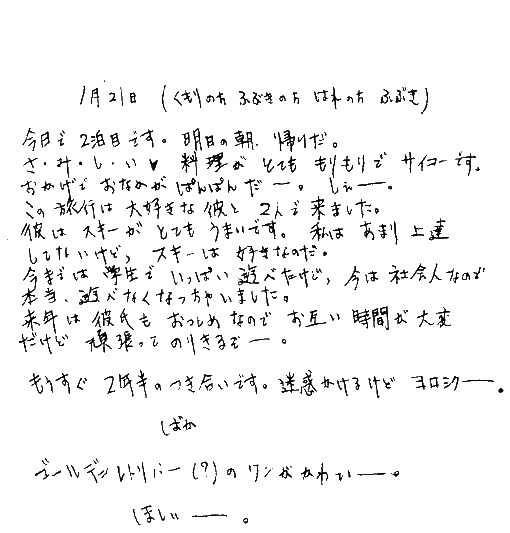 1月21日 (くもりのち ふぶきのち はれのち ふぶき)
今日で 2泊目です。明日の朝、帰りだ。
さ・み・し・い♥ 料理が とても もりもりで サイコーです。
おかげで おなかが ぱんぱんだー。しぇー。
この旅行は 大好きな彼と 2人で来ました。
彼は スキーが とても うまいです。私は あまり 上達
してないけど、スキーは 好きなのだ。
今までは 学生で いっぱい 遊べたけど、今は 社会人なので
本当、遊べなくなっちゃいました。
来年は 彼氏も おつとめなので お互い 時間が 大変
だけど 頑張って のりきるぞー。
もうすぐ 2年半の つき合いです。迷惑かけるけど ヨロシクー。
ばか
ゴールデンレトリバー(?)の ワンが かわいー。
ほしいー。